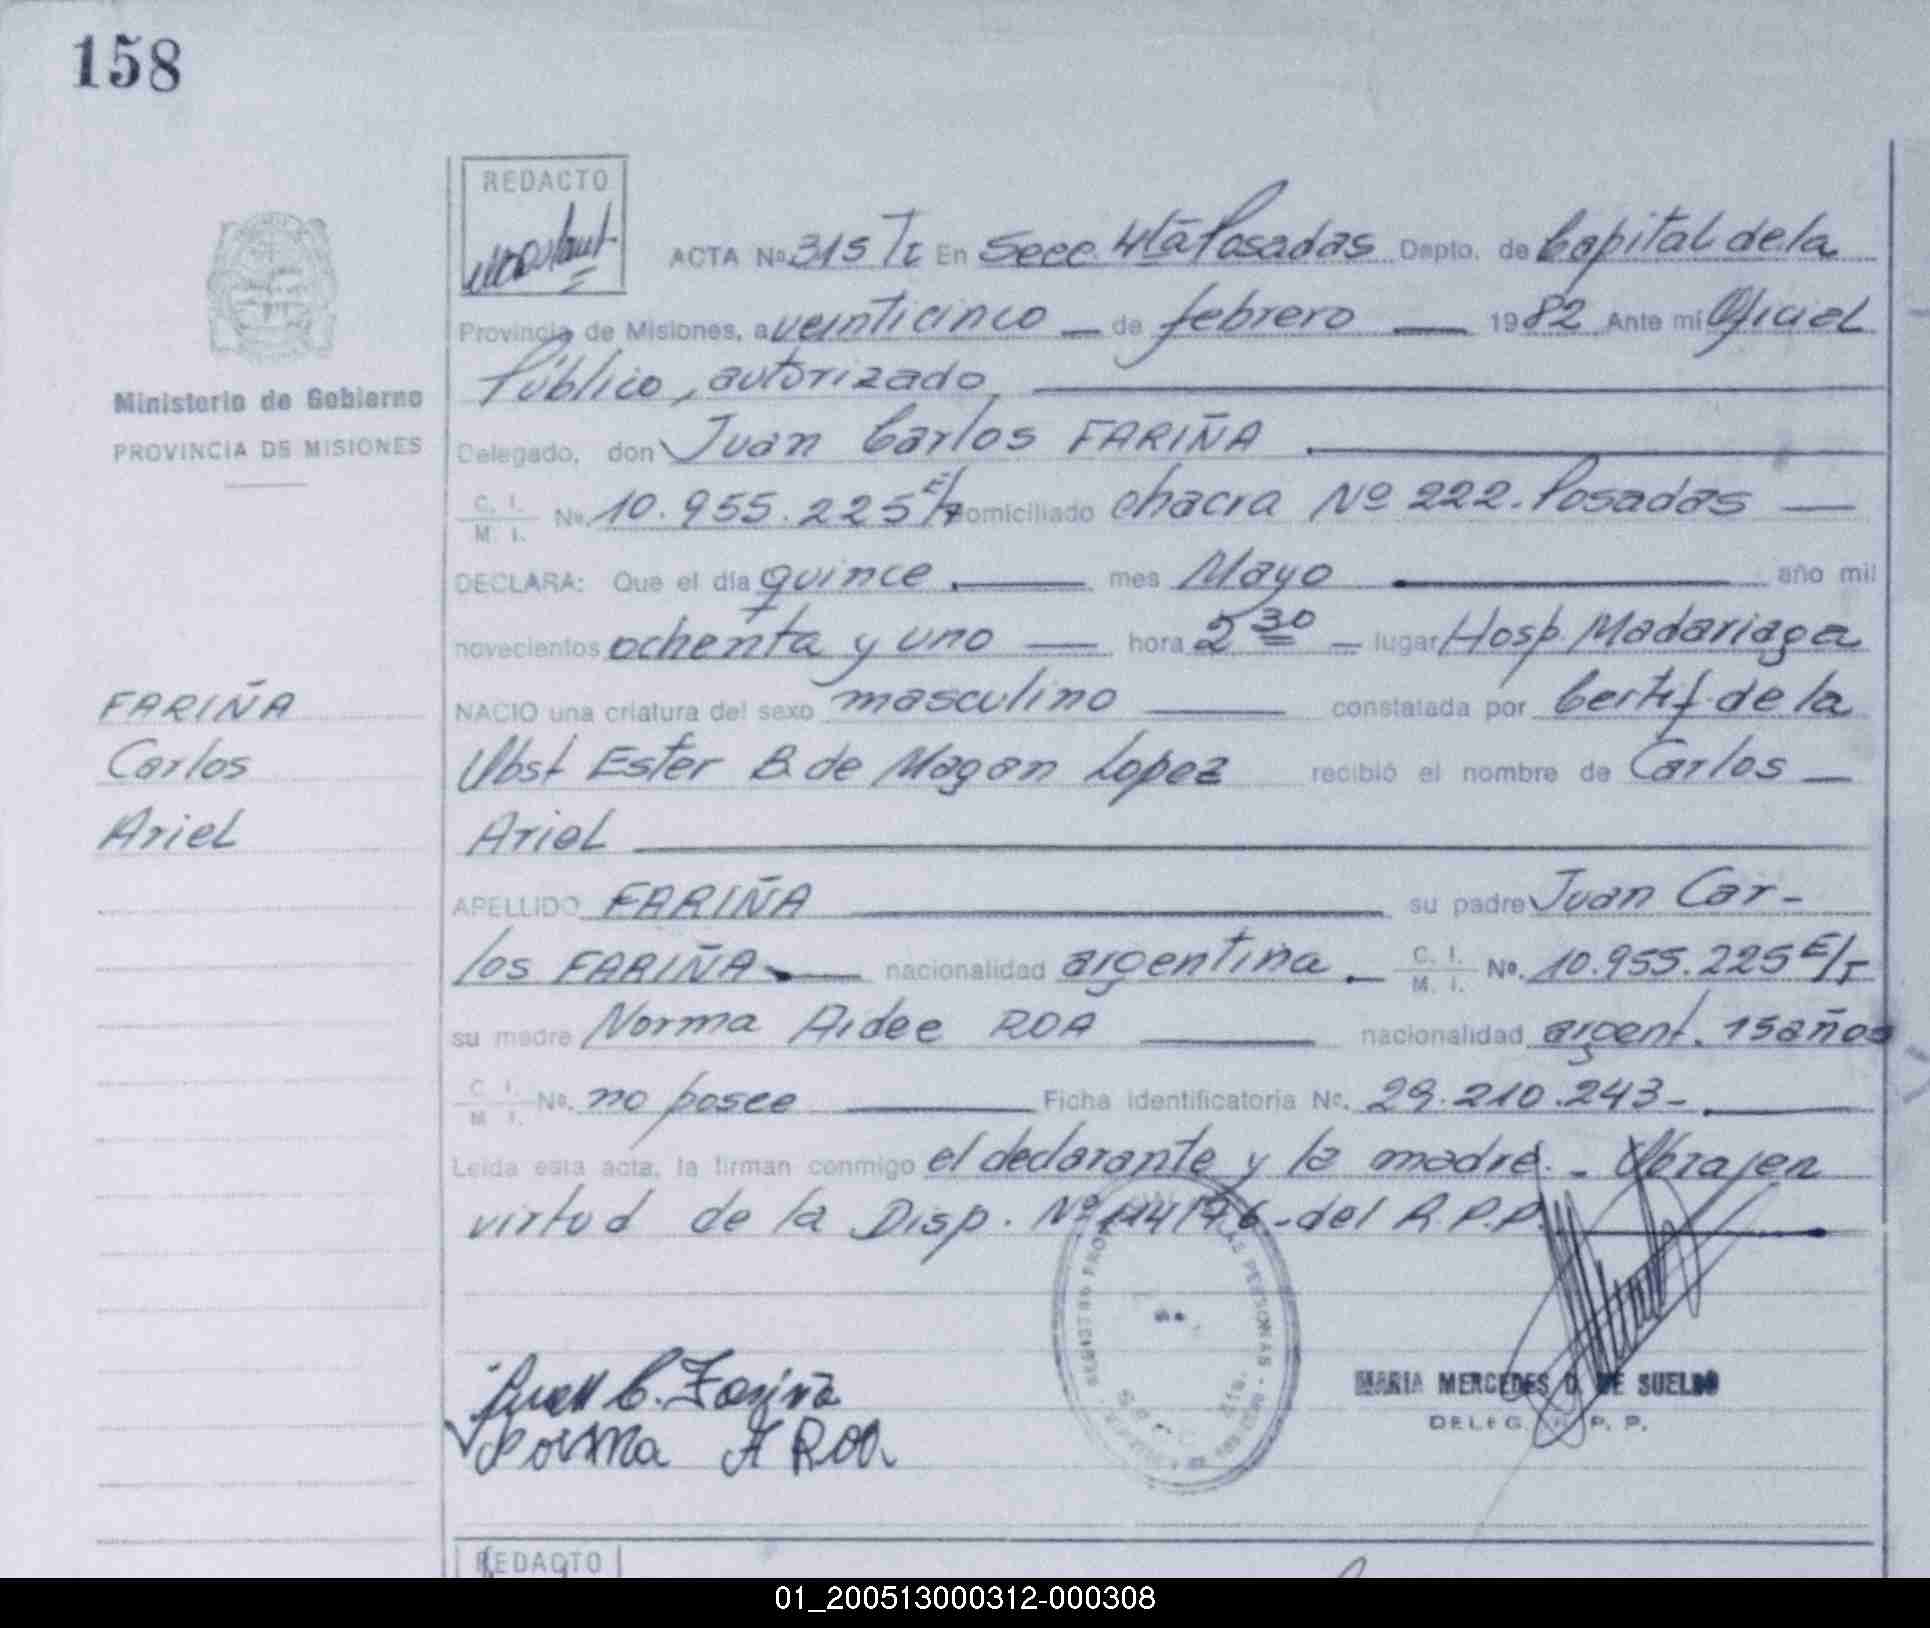 158
REDACTO
ACTA Nº 315 TI En Secc. 4ta Posadas Depto. de Capital de la
Provincia de Misiones, a veinticinco — de febrero — 1982 Ante mi Oficial
Público, autorizado,
Ministerio de Gobierno
PROVINCIA DE MISIONES
Delegado, don Juan Carlos FARIÑA
C. I. / M. I. Nº. 10.955.225 E/T domiciliado chacra Nº 222. Posadas —
DECLARA: Que el día quince mes Mayo año mil
novecientos ochenta y uno — hora 2 30 — lugar Hosp. Madariaga
FARIÑA
Carlos
Ariel
NACIO una criatura del sexo masculino constatada por Certif. de la
Obst Ester B. de Magan Lopez recibió el nombre de Carlos —
Ariel
APELLIDO FARIÑA su padre Juan Car-
los FARIÑA nacionalidad argentina C. I. / M. I. Nº. 10.955.225 E/T
su madre Norma Aidee ROA nacionalidad argent. 15 años
C. I. / M. I. Nº. no posee Ficha identificatoria Nº. 29.210.243-
Leida esta acta, la firman conmigo el declarante y la madre. - Obra en
virtud de la Disp. Nº 114/76 - del R.P.P.
Juan C. Fariña
Norma A Roa
MARIA MERCEDES D. DE SUELDO
DELEG. R. P. P.
REDACTO
01_200513000312-000308